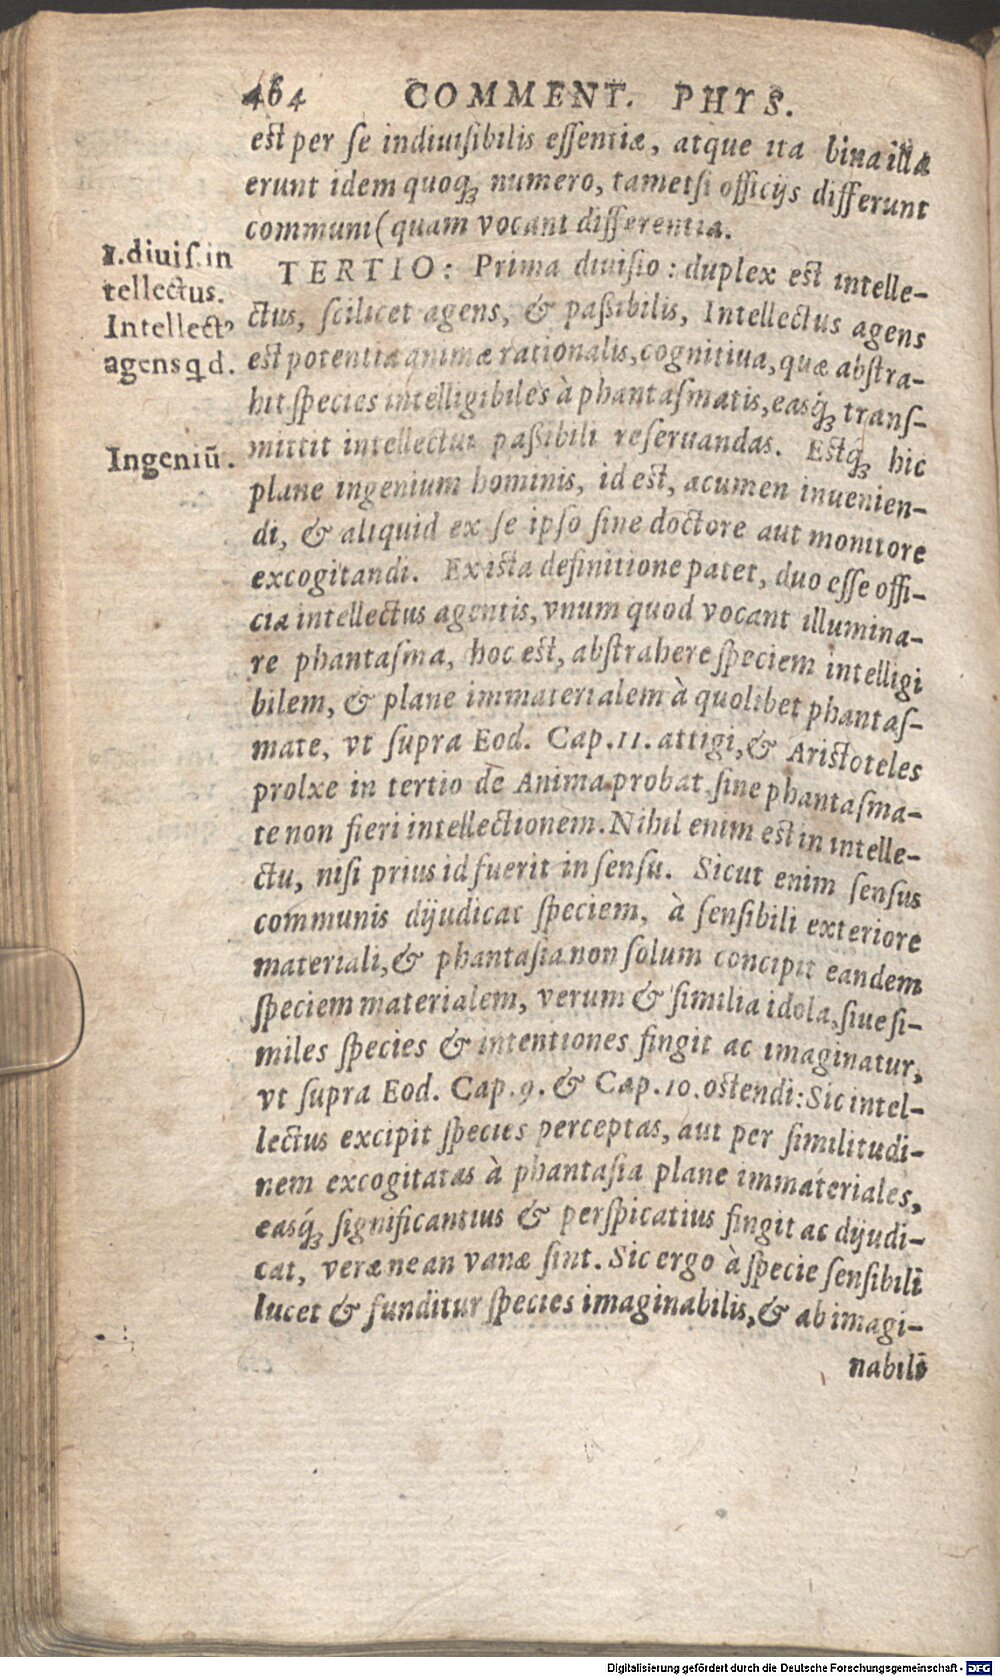 464 COMMENT. PHYS.
est per se indiuisibilis essentiæ, atque ita bina illa
erunt idem quoq́; numero, tametsi officijs differunt
communi (quam vocant differentia.
1.diuis.in
tellectus.
Intellect⁹
agens qd.
TERTIO: Prima diuisio: duplex est intelle-
ctus, scilicet agens, & passibilis, Intellectus agens
est potentia animæ rationalis, cognitiua, quæ abstra-
hit species intelligibiles à phantasmatis, easq́; trans-
mittit intellectui passibili reseruandas. Estq́; hic
Ingeniū.
plane ingenium hominis, id est, acumen inuenien-
di, & aliquid ex se ipso sine doctore aut monitore
excogitandi. Ex ista definitione patet, duo esse offi-
cia intellectus agentis, vnum quod vocant illumina-
re phantasma, hoc est, abstrahere speciem intelligi
bilem, & plane immaterialem à quolibet phantas-
mate, vt supra Eod. Cap.11. attigi, & Aristoteles
prolxe in tertio de Anima probat sine phantasma-
te non fieri intellectionem. Nihil enim est in intelle-
ctu, nisi prius id fuerit in sensu. Sicut enim sensus
communis dijudicat speciem, à sensibili exteriore
materiali, & phantasia non solum concipit eandem
speciem materialem, verum & similia idola, siue si-
miles species & intentiones fingit ac imaginatur,
vt supra Eod. Cap.9. & Cap.10. ostendi: Sic intel-
lectus excipit species perceptas, aut per similitudi-
nem excogitatas à phantasia plane immateriales,
easq́; significantius & perspicatius fingit ac dijudi-
cat, veræ ne an vanæ sint. Sic ergo à specie sensibili
lucet & funditur species imaginabilis, & ab imagi-
nabili
Digitalisierung gefördert durch die Deutsche Forschungsgemeinschaft - DFG